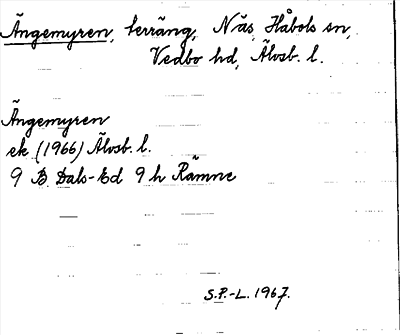 Ängemyren, terräng, Näs, Håbols sn,
Vedbo hd, Älvsb. l.
Ängemyren
ek (1966) Älvsb. l.
9 B Dals-Ed 9 h Rämne
S.P.-L. 1967.